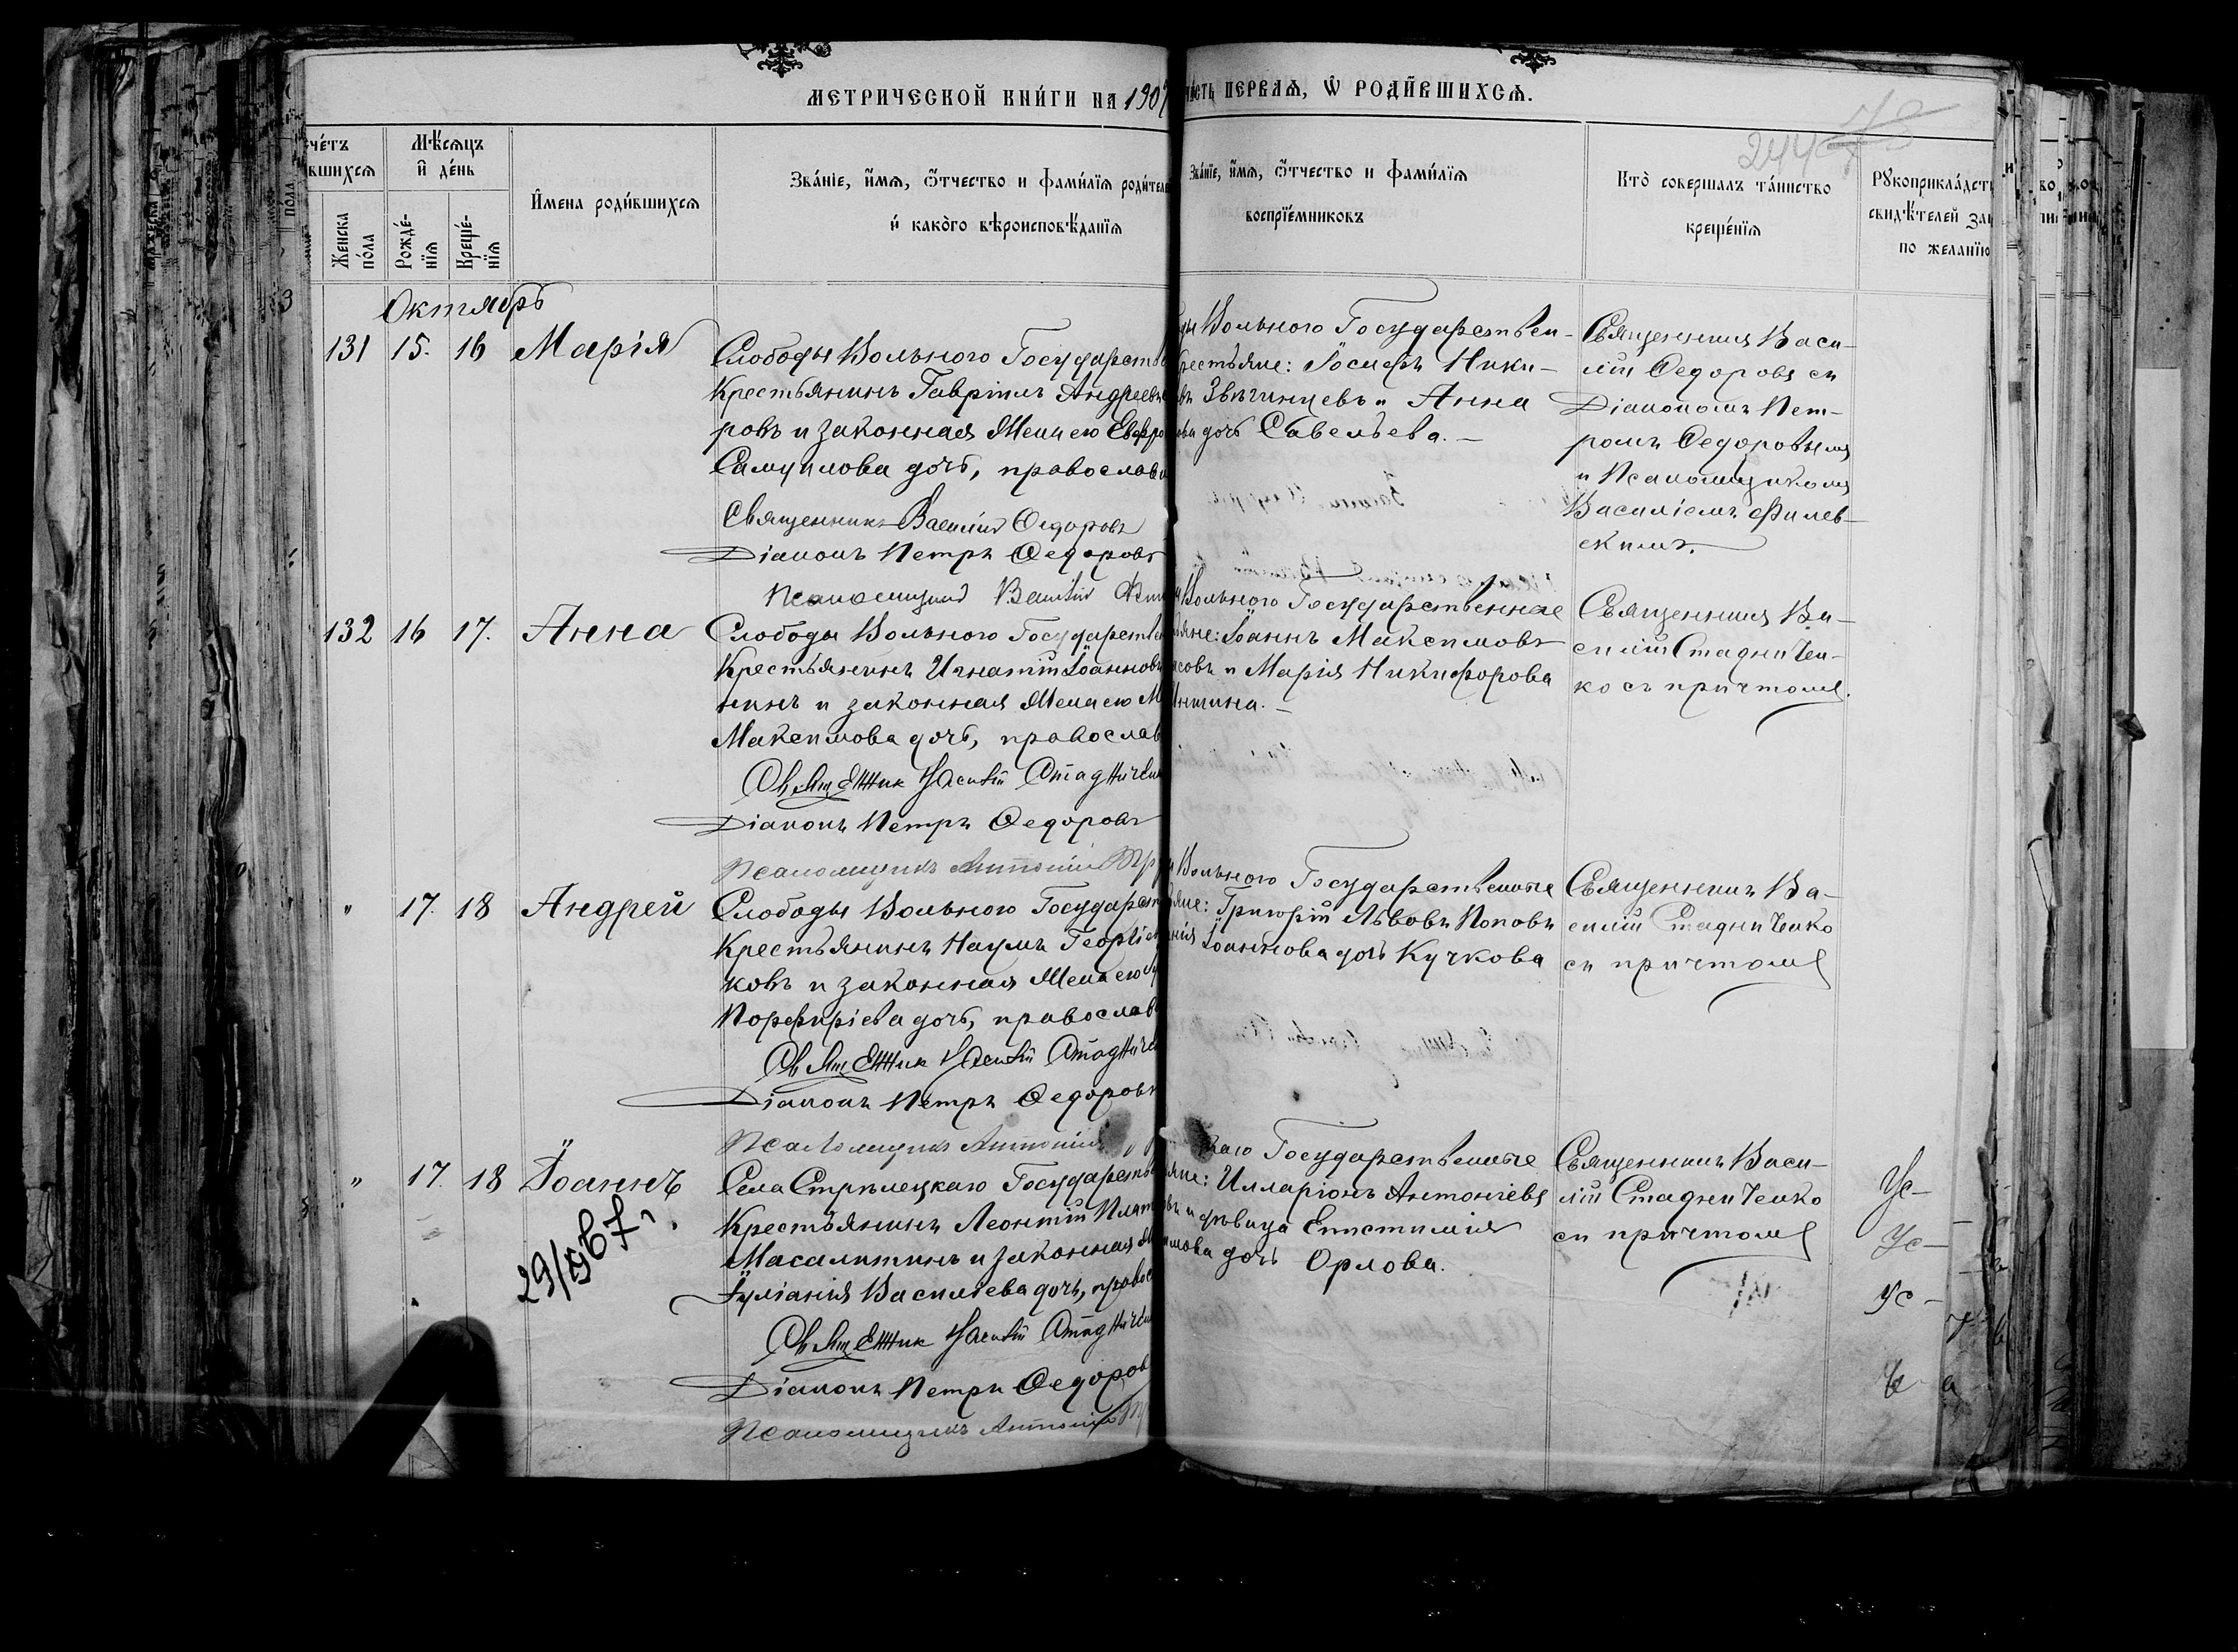 МЕТРИЧЕСКОЙ КНИ́ГИ НА 1907
ЧА́СТЬ ПЕРВАѦ, Ѡ РОДИ́ВШИХСѦ.
244
счéтъ
вшихсѧ
Мѣ́сѧцъ
и҆ дéнь
Же́нска
по́ла
Рожде́-
нїѧ
Креще́-
нїѧ
И҆мена роди́вшихсѧ
Зва́нїе, и҆́мѧ, ѻ҆́тчество и фами́лїѧ роди́теле
и҆ како́гѡ вѣроисповѣ́данїѧ
Зва́нїе, и҆́мѧ, ѻ҆́тчество и фами́лїѧ
воспрїе́мниковъ
Кто̀ соверша́лъ та́инство
креще́нїѧ
Рꙋкоприкла́дст
свидѣ́телей за
по жела́нїю
Октябрь
131 15. 16 Марія
Слободы Вольного Государств
Крестьянинъ Гавріилъ Андреевъ
ровъ и законная жена его Евфро
Самуилова дочь, православн
Священникъ Василій Ѳедоровъ
Діаконъ Петръ Ѳедоровъ
Псаломщикъ Василій
Вольного Государствен-
крестьяне: Іосифъ Ники-
Звягинцевъ и Анна
дочь Савельева.
Священникъ Васи-
лій Ѳедоровъ съ
Діакономъ Пет-
ромъ Ѳедоровымъ
и Псаломщикомъ
Василіемъ Филев-
скимъ.
132 16 17. Анна
Слободы Вольного Государствен
Крестьянинъ Игнатій Іоанновъ
нинъ и законная жена его М
Максимова дочь, православ
Священник Василій Стадниченк
Діаконъ Петръ Ѳедоровъ
Псаломщикъ Антоній
Вольного Государственные
яне: Іоаннъ Максимовъ
совъ и Марія Никифорова
Священникъ Ва-
силій Стадничен-
ко съ причтомъ.
" 17. 18 Андрей
Слободы Вольного Государств
Крестьянинъ Наумъ Георгіе
ковъ и законная жена его
Порфиріева дочь, православ
Священник Василій Стадниче
Діаконъ Петръ Ѳедоровъ
Псаломщикъ Антоній
Вольного Государственные
яне: Григорій Львовъ Поповъ
Іоаннова дочь Кучкова
Священникъ Ва-
силій Стадниченко
съ причтомъ
" 17. 18 Іоаннъ
Села Стрѣлецкаго Государств
Крестьянинъ Леонтій Плат
Масалитинъ и законная ж
Іуліанія Василіева дочь, правос
Священник Василій Стадничен
Діаконъ Петръ Ѳедоров
Псаломщикъ Антоній
каго Государственные
яне: Илларіонъ Антоніевъ
и дѣвица Епистимія
мова дочь Орлова.
Священникъ Васи-
лій Стадниченко
съ причтомъ